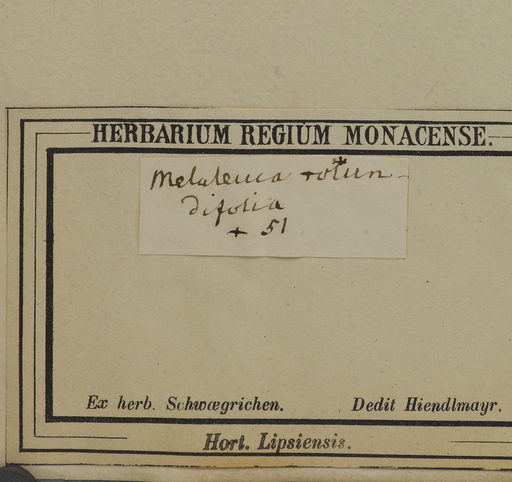 HERBARIUM REGIUM MONACENSE.
Melaleuca rotun-
difolia
+ 51
Ex herb. Schwægrichen. Dedit Hiendlmayr.
Hort. Lipsiensis.